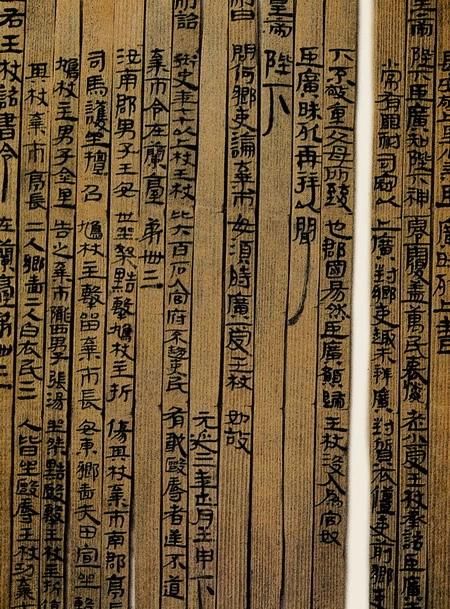 長安敬上里公乘臣廣昧死上書
皇帝陛下臣廣知陛下神零覆蓋萬民哀憐老小受王杖承詔臣廣未
常有罪耐司寇以上廣對鄉吏趣未辨廣對質衣僵吏前鄉吏
下不敬重父母所致也郡國易然臣廣願歸王杖沒入為官奴
臣廣昧死再拜以聞
皇帝陛下
制曰問何鄉吏論棄市毋須時廣受王杖如故
元延三年正月壬申下
制詔御史年七十以上杖王杖比六百石入官府不趨吏民有敢毆辱者逆不道
棄市令在蘭臺第卌三
汝南郡男子王安世坐桀黠擊鳩杖主折傷其杖棄市南郡亭長
司馬護坐擅召鳩杖主擊留棄市長安東鄉嗇夫田宣坐毄
鳩杖主男子金里告之棄市隴西男子張湯坐桀黠毆擊王杖主折傷
其杖棄市亭長二人鄉嗇二人白衣民三人皆坐毆辱王杖功棄市
右王杖詔書令 在蘭臺第卌三